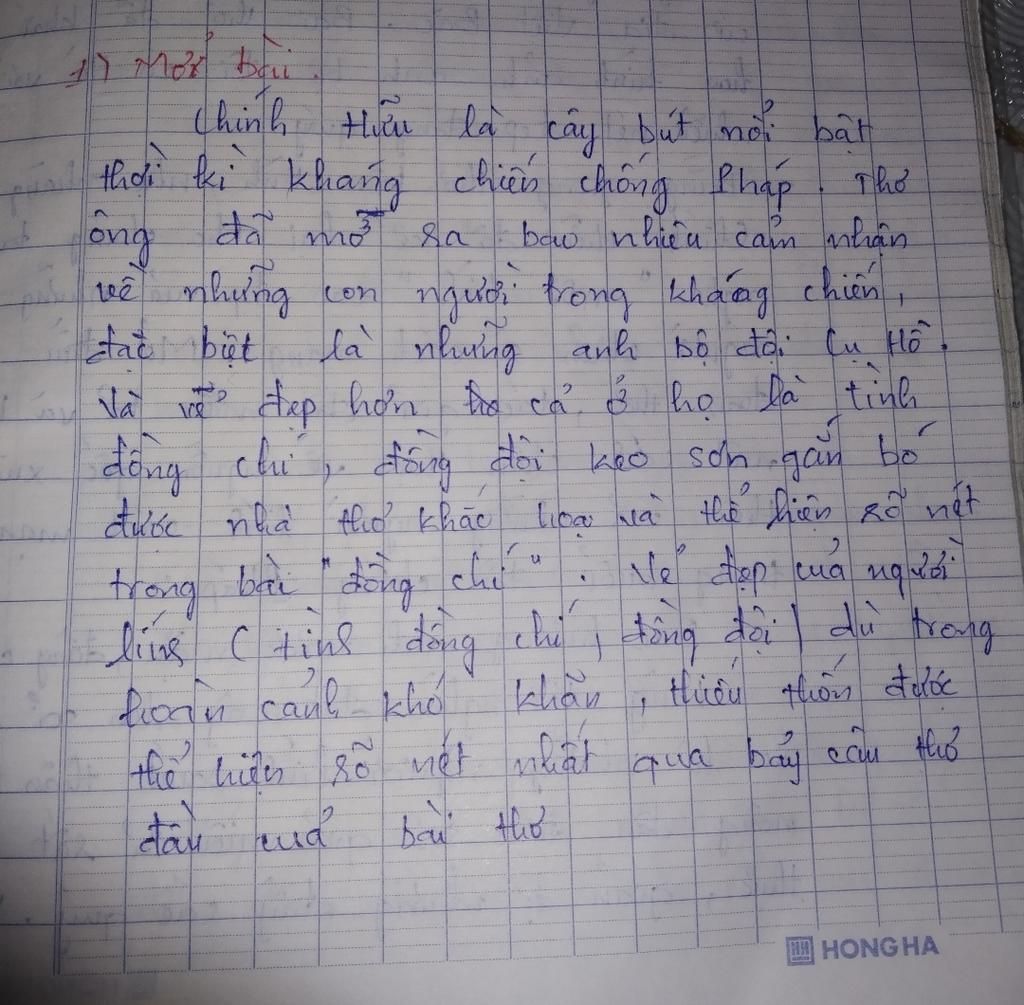 1) Mở bài.
Chính Hữu là cây bút nổi bật
thời kì kháng chiến chống Pháp. Thơ
ông đã mở ra bao nhiêu cảm nhận
về những con người trong kháng chiến,
đặc biệt là những anh bộ đội Cụ Hồ.
Và vẻ đẹp hơn cả ở họ là tình
đồng chí, đồng đội keo sơn gắn bó
được nhà thơ khắc hoạ và thể hiện rõ nét
trong bài "đồng chí". Vẻ đẹp của người
lính (tình đồng chí, đồng đội) dù trong
hoàn cảnh khó khăn, thiếu thốn được
thể hiện rõ nét nhất qua bảy câu thơ
đầu của bài thơ
HONG HA